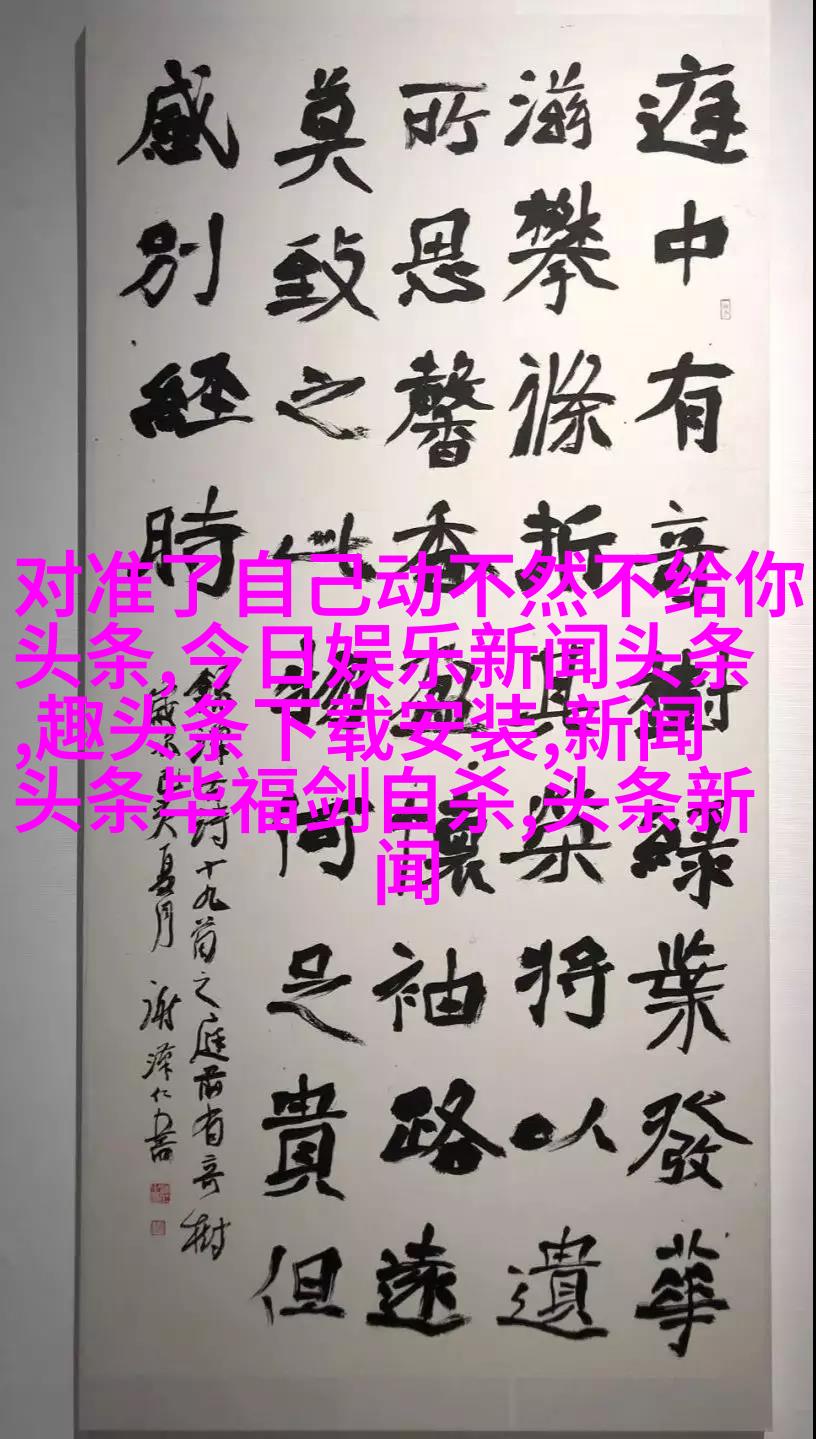 庭中有奇樹緑葉發華
滋攀條折其榮將以遺
所思馨香盈懷袖路遠
莫致之此物何足貴但
感別經時
詩十九首之庭前有奇樹
夏月 謝澤仁書
对准了自己动不然不给你
头条,今日娱乐新闻头条
,趣头条下载安装,新闻
头条毕福剑自杀,头条新
闻